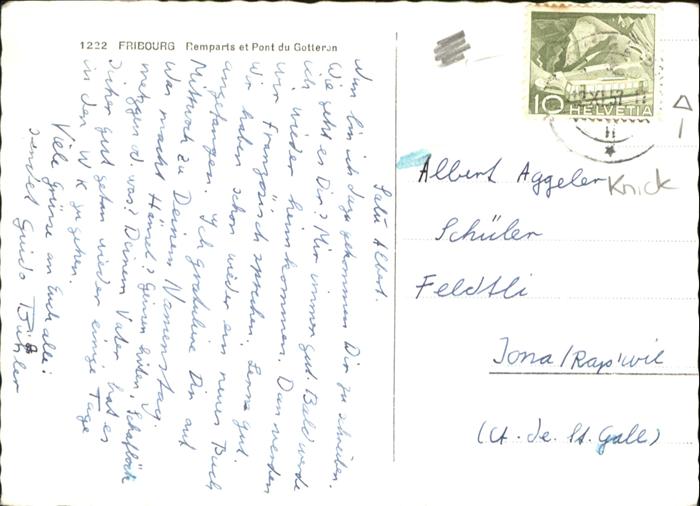 1222 FRIBOURG Remparts et Pont du Gotteron
Salü Albert.
Nun bin ich dazu gekommen Dir zu schreiben.
Wie geht es Dir? Mir immer gut. Bald werde
ich wieder heimkommen. Dan werden
wir Französisch sprechen. Lerne gut.
Wir haben schon wieder ein neues Buch
angefangen. Ich gratuliere Dir auf
Mittwoch zu Deinem Namenstag.
Was macht Hänsel?
was? Deinem Vater hat es
sicher gut getan wieder einige Tage
in den W.K. zu gehen.
Viele Grüsse an Euch alle
sendet Guido
10 HELVETIA
Albert Aggeler
Knick
Schüler
Feldtli
Jona/Rap'wil
(Ct. de St. Gall)